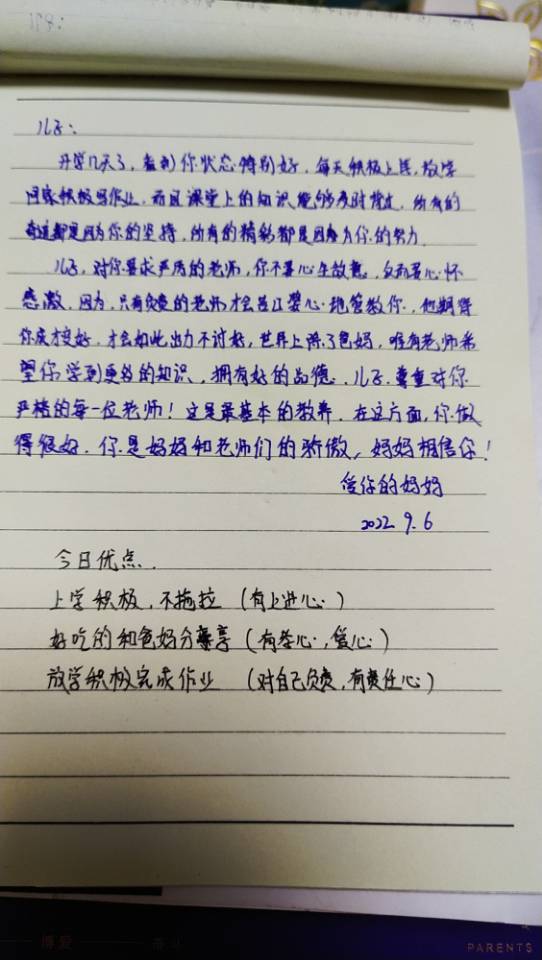 儿子：
开学几天了，看到你状态特别好，每天积极上学，放学
回家积极写作业，而且课堂上的知识能够及时背过，所有的
奇迹都是因为你的坚持，所有的精彩都是因为你的努力
儿子，对你要求严厉的老师，你不要心生敌意，反而要心怀
感激，因为，只有负责的老师才会苦口婆心地管教你，他期望
你成才变好，才会如此出力不讨好，世界上除了爸妈，唯有老师希
望你学到更多的知识，拥有好的品德，儿子，尊重对你
严格的每一位老师！这是最基本的教养，在这方面，你做
得很好，你是妈妈和老师们的骄傲，妈妈相信你！
爱你的妈妈
2022 9.6
今日优点.
上学积极，不拖拉（有上进心）
好吃的和爸妈分享（有孝心，爱心）
放学积极完成作业（对自己负责，有责任心）
博爱
PARENTS